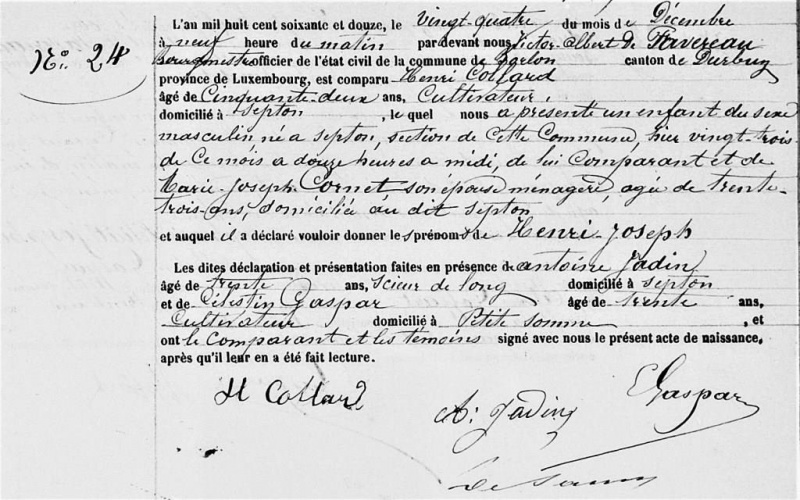 N.o 24
L'an mil huit cent soixante et douze, le vingt-quatre du mois de Décembre
à neuf heure du matin par devant nous Victor Albert De Favereau
Bourgmestre officier de l'état civil de la commune de canton de Durbuy
province de Luxembourg, est comparu Henri Collard
âgé de Cinquante-deux ans, Cultivateur,
domicilié à Septon, le quel nous a présenté un enfant du sexe
masculin né a Septon, section de Cette Commune, hier vingt-trois
de Ce mois a douze heures a midi, de lui Comparant et de
Marie-Joseph Cornet son épouse ménagère, agée de trente-
trois ans, domiciliée au dit Septon
et auquel il a déclaré vouloir donner les prénoms de Henri-Joseph
Les dites déclaration et présentation faites en présence de antoine Jadin
âgé de trente ans, Scieur de long domicilié à Septon
et de Célestin Gaspar âgé de trente ans,
Cultivateur domicilié à Petite Somme, et
ont le Comparant et les témoins signé avec nous le présent acte de naissance,
après qu'il leur en a été fait lecture.
H Collard
A: Jadin
C Gaspar